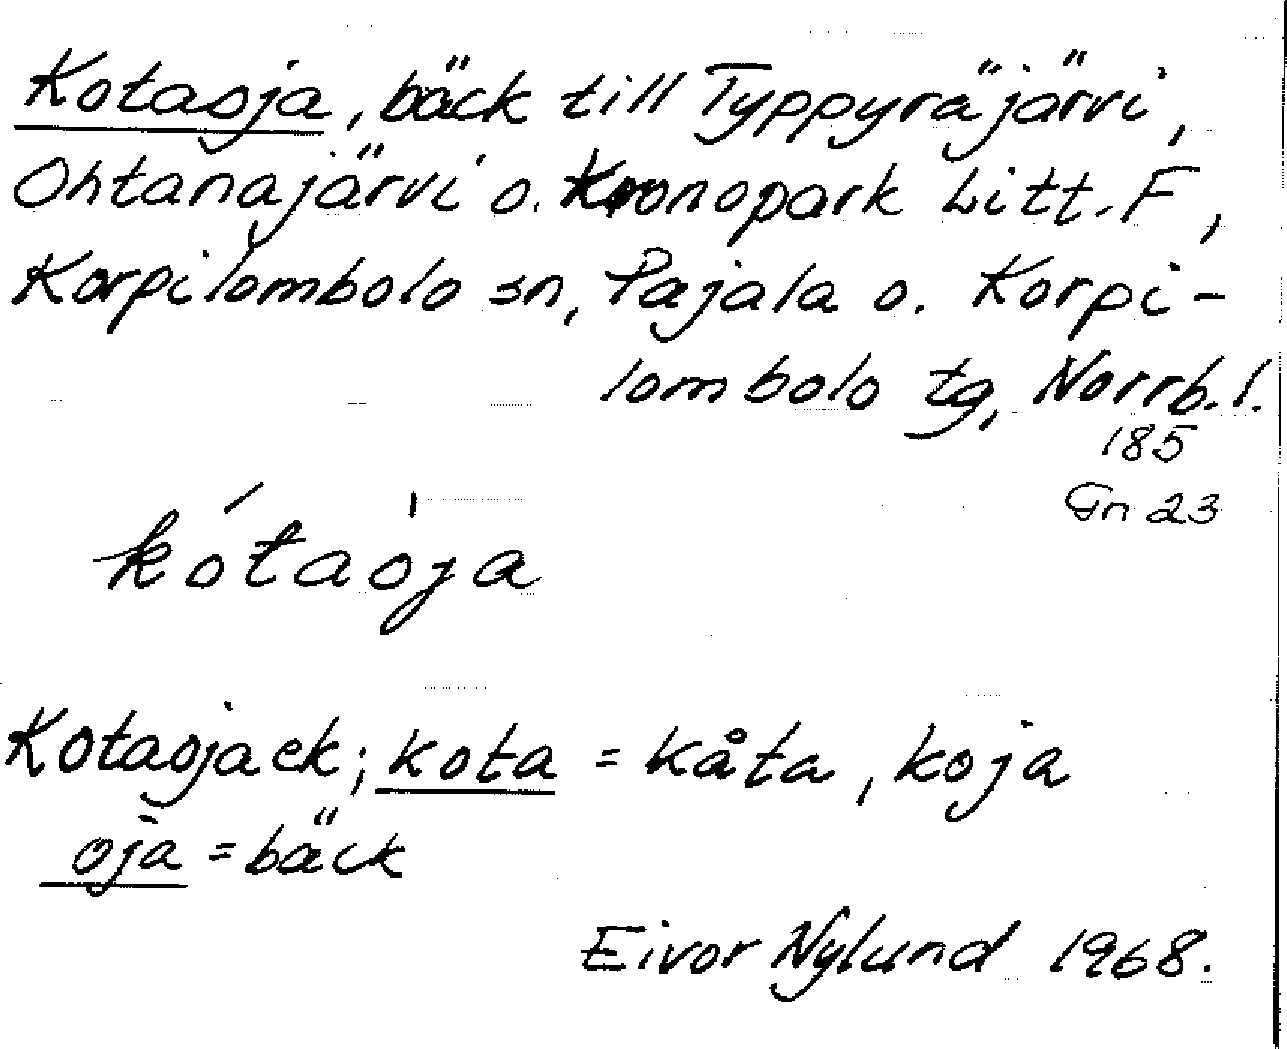 Kotaoja, bäck till Typpyräjärvi,
Ohtanajärvi o. Kronopark Litt. F,
Korpilombolo sn, Pajala o. Korpi-
lombolo tg, Norrb. l.
185
Gn 23
kótaòja
Kotaojack; kota = kåta, koja
oja = bäck
Eivor Nylund 1968.